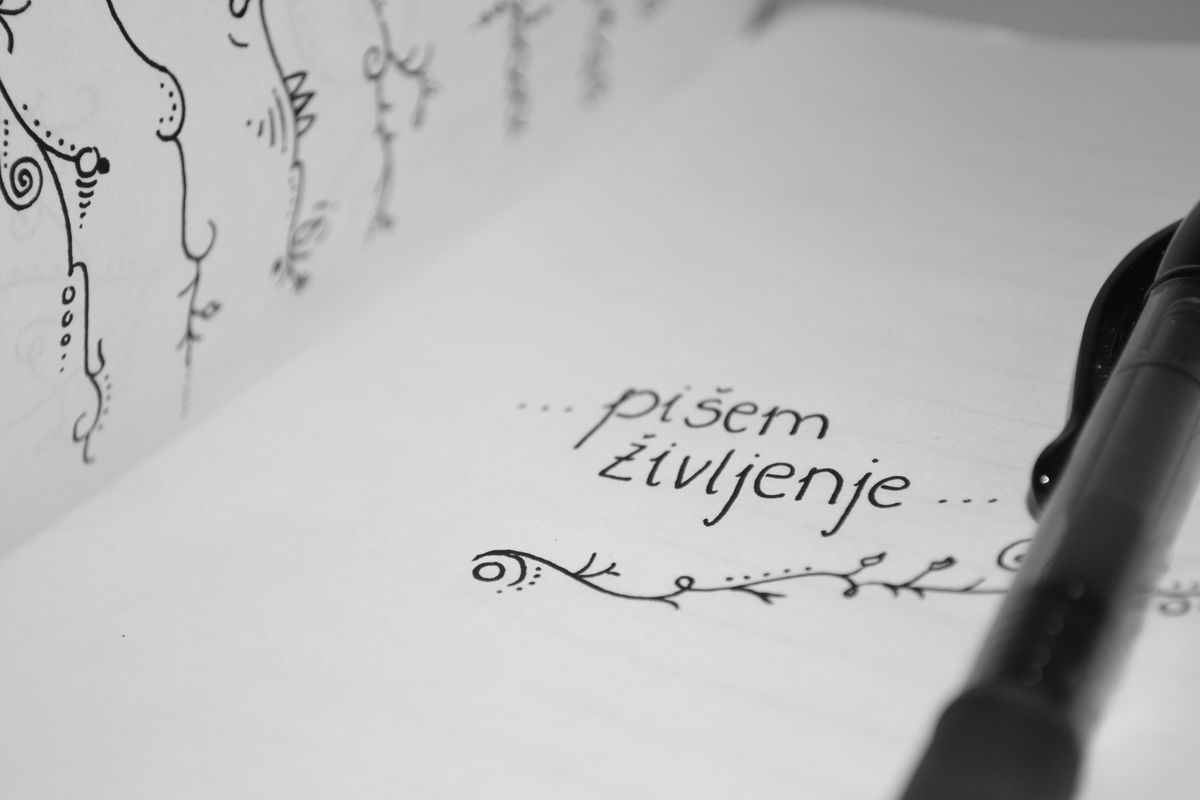 ... pišem
življenje ...